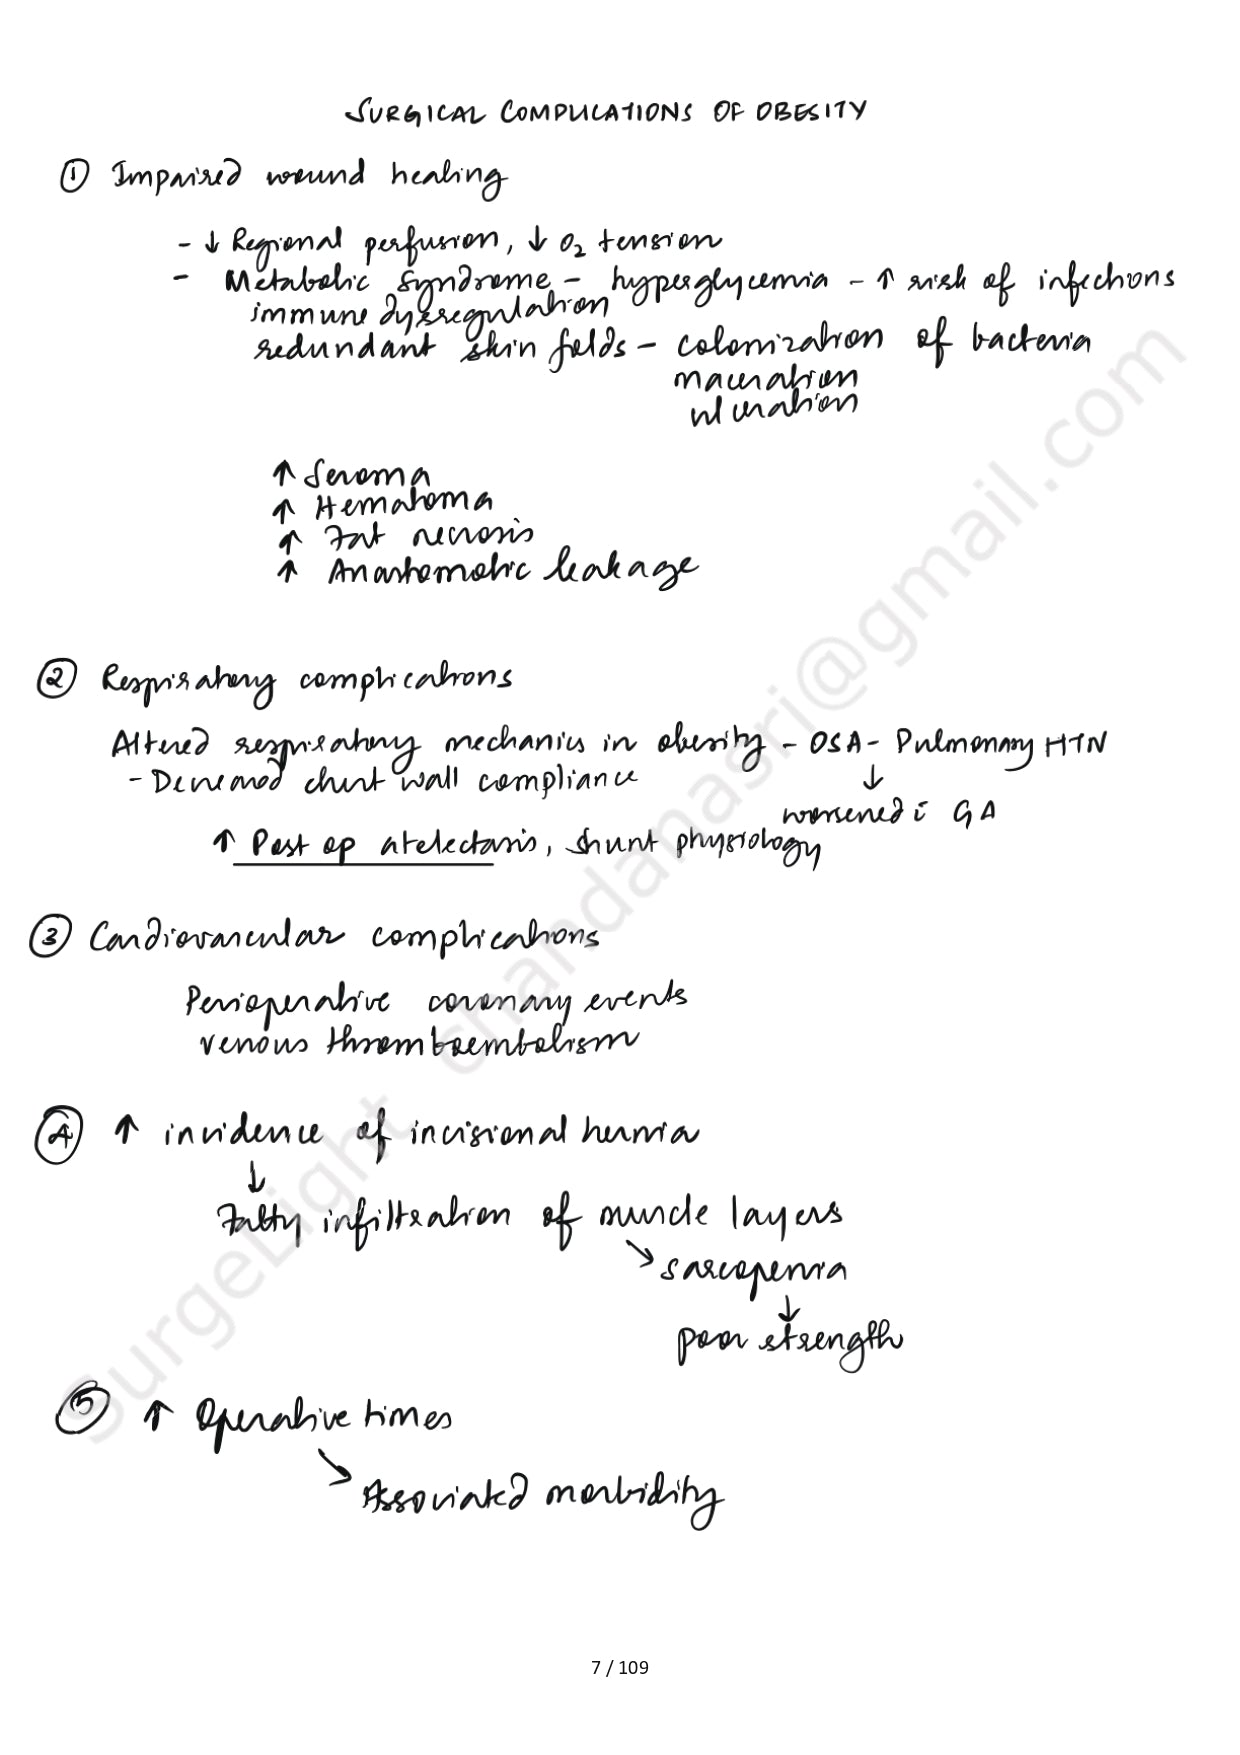 SURGICAL COMPLICATIONS OF OBESITY
① Impaired wound healing
- ↓ Regional perfusion, ↓ O₂ tension
- Metabolic syndrome - hyperglycemia - ↑ risk of infections
immune dysregulation
redundant skin folds - colonization of bacteria
maceration
ulceration
↑ Seroma
↑ Hematoma
↑ Fat necrosis
↑ Anastomotic leakage
② Respiratory complications
Altered respiratory mechanics in obesity - OSA - Pulmonary HTN
- Decreased chest wall compliance
↓
worsened c̄ GA
↑ Post op atelectasis, shunt physiology
③ Cardiovascular complications
Perioperative coronary events
venous thromboembolism
④ ↑ incidence of incisional hernia
↓
Fatty infiltration of muscle layers
↘ sarcopenia
↓
poor strength
⑤ ↑ Operative times
↘ Associated morbidity
SurgeLight chandanasri@gmail.com
7 / 109